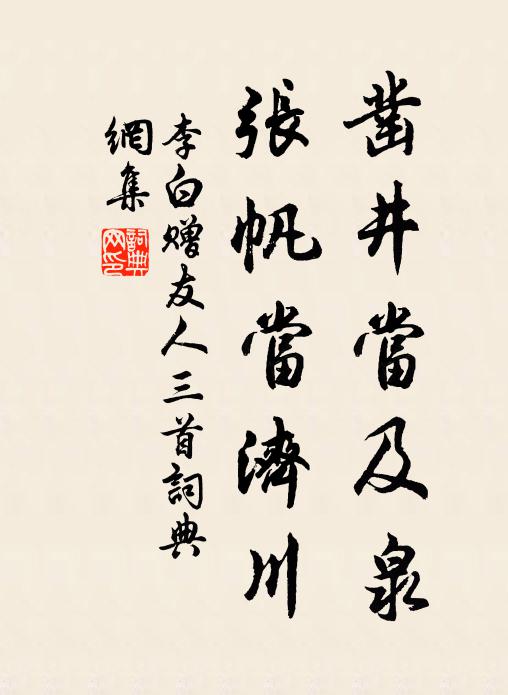 鑿井當及泉
張帆當濟川
李白贈友人三首詞典
網集
詞典
网印